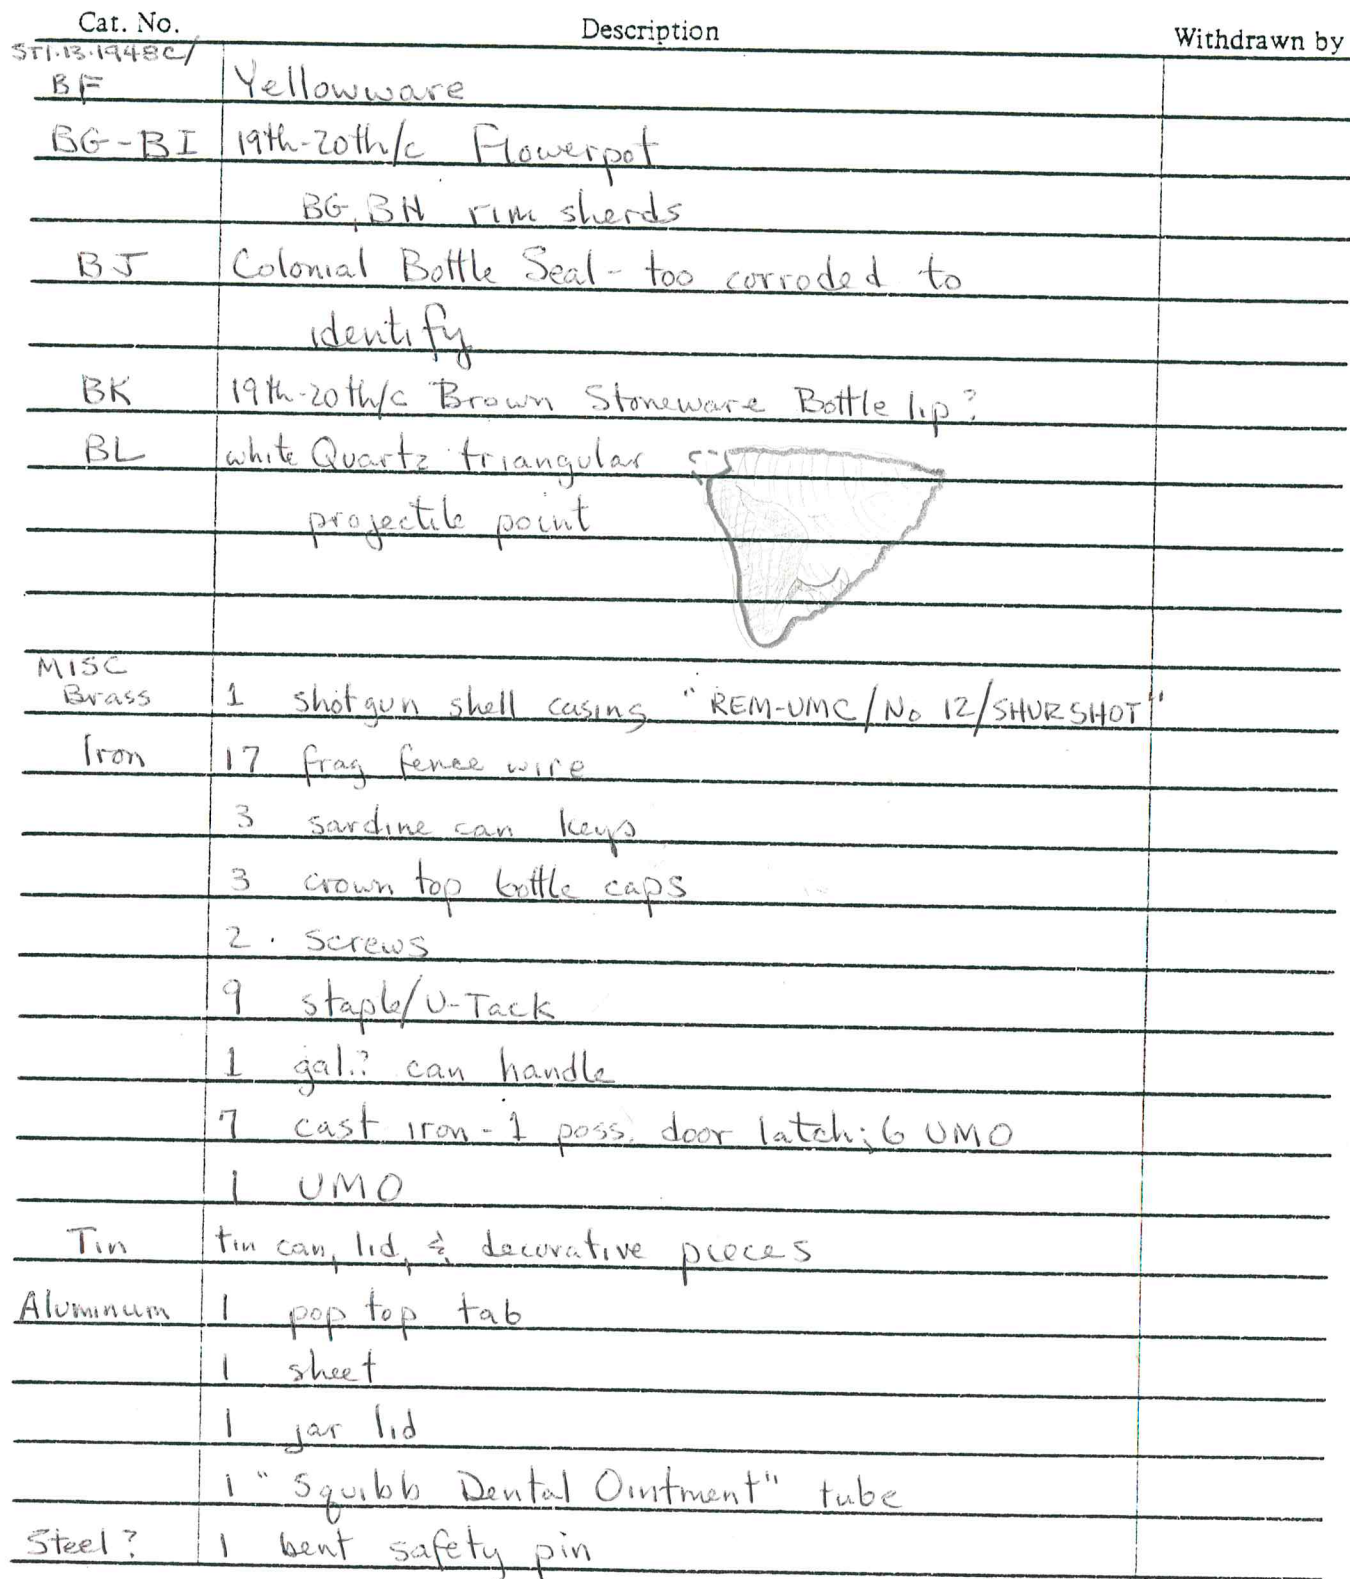 Cat. No. Description Withdrawn by
ST1.13.1948C/
BF Yellowware
BG-BI 19th-20th/c Flowerpot
BG, BH rim sherds
BJ Colonial Bottle Seal - too corroded to
identify
BK 19th-20th/c Brown Stoneware Bottle lip?
BL white Quartz triangular
projectile point
MISC
Brass 1 shotgun shell casing "REM-UMC/No 12/SHURSHOT"
Iron 17 frag fence wire
3 sardine can keys
3 crown top bottle caps
2. screws
9 staple/U-Tack
1 gal.? can handle
7 cast iron - 1 poss. door latch; 6 UMO
1 UMO
Tin tin can, lid, & decorative pieces
Aluminum 1 pop top tab
1 sheet
1 jar lid
1 "Squibb Dental Ointment" tube
Steel? 1 bent safety pin